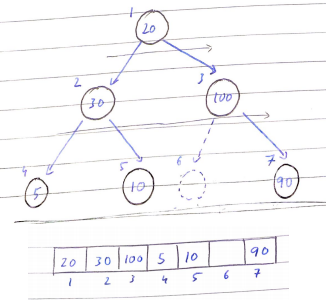 1
20
2 3
30 100
4 5 6 7
5 10 90
20 30 100 5 10 90
1 2 3 4 5 6 7